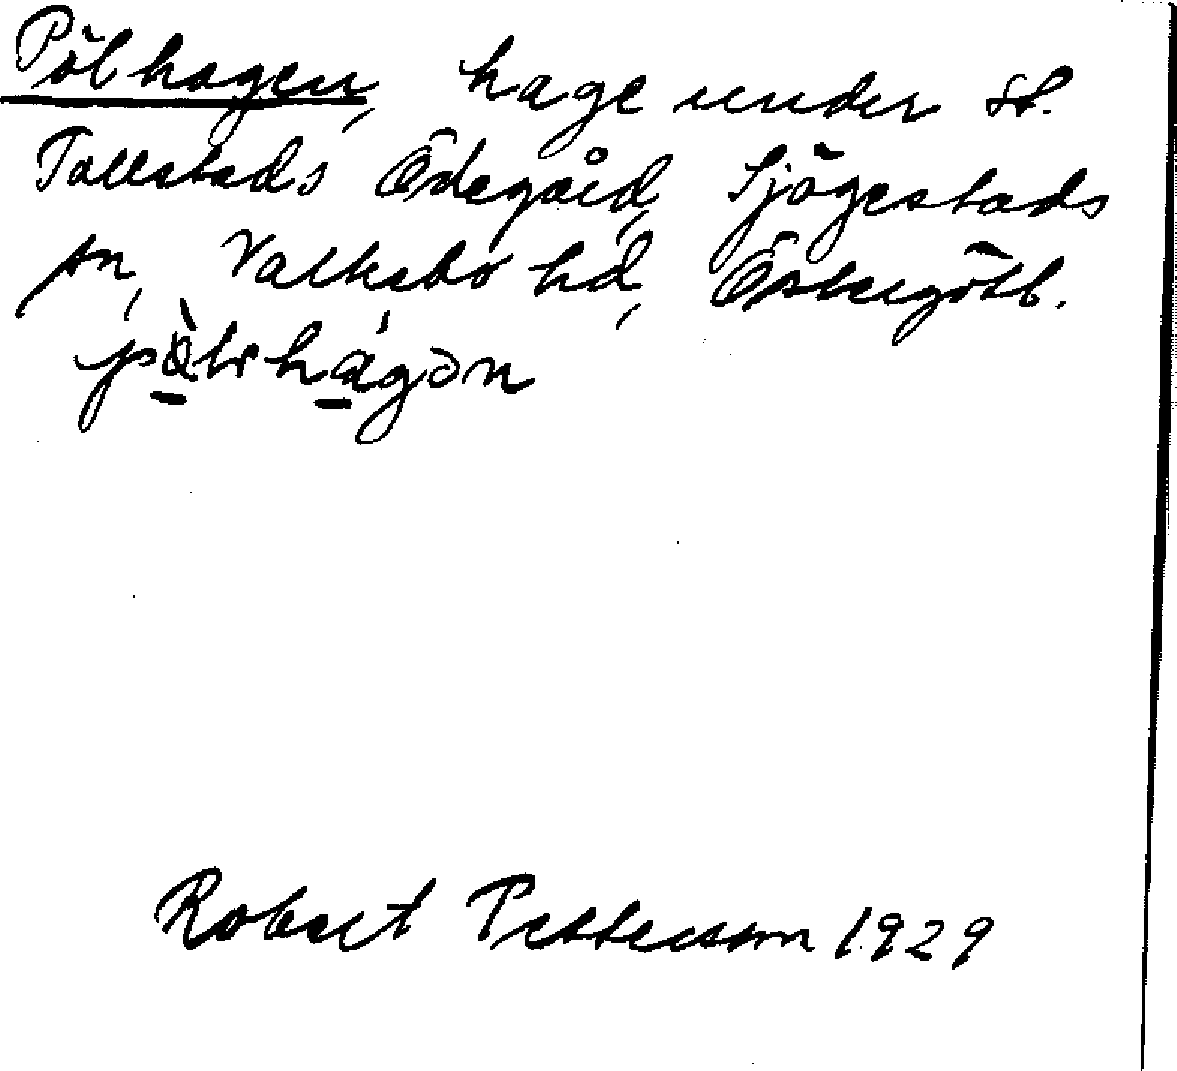 Pölhagen, hage under St.
Tallstads Ödegård, Sjögestads
sn, Valkebo hd, Östergötl.
Robert Pettersson 1929